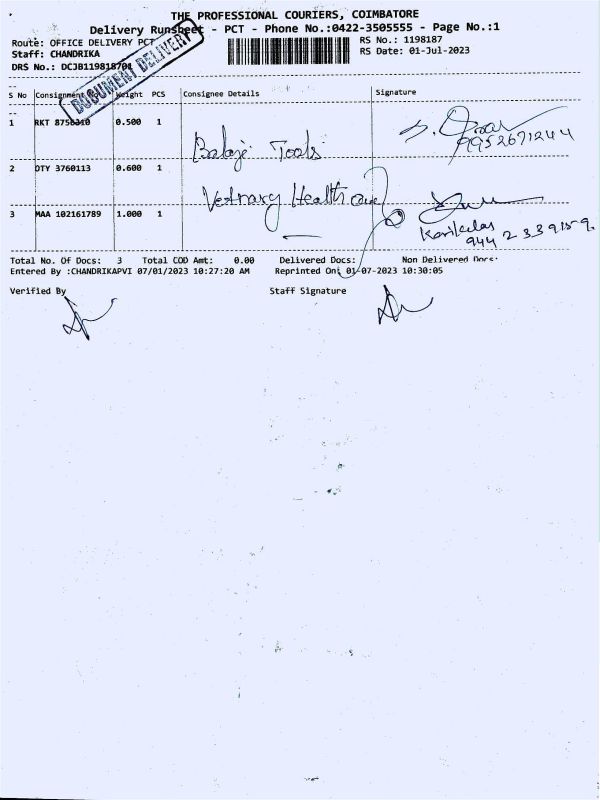 THE PROFESSIONAL COURIERS, COIMBATORE
Delivery Runsheet - PCT - Phone No.:0422-3505555 - Page No.:1
Route: OFFICE DELIVERY PCT
RS No.: 1198187
Staff: CHANDRIKA
RS Date: 01-Jul-2023
DRS No.: DCJB119818701
DOCUMENT DELIVERY
S No Consignment No Weight PCS Consignee Details Signature
1 RKT 8758310 0.500 1 Balaji Tools
9952671244
2 DTY 3760113 0.600 1
Vetnary Healthcare
3 MAA 102161789 1.000 1
944 2 339159
Total No. Of Docs: 3 Total COD Amt: 0.00 Delivered Docs: Non Delivered Docs:
Entered By :CHANDRIKAPVI 07/01/2023 10:27:20 AM Reprinted On: 01-07-2023 10:30:05
Verified By Staff Signature